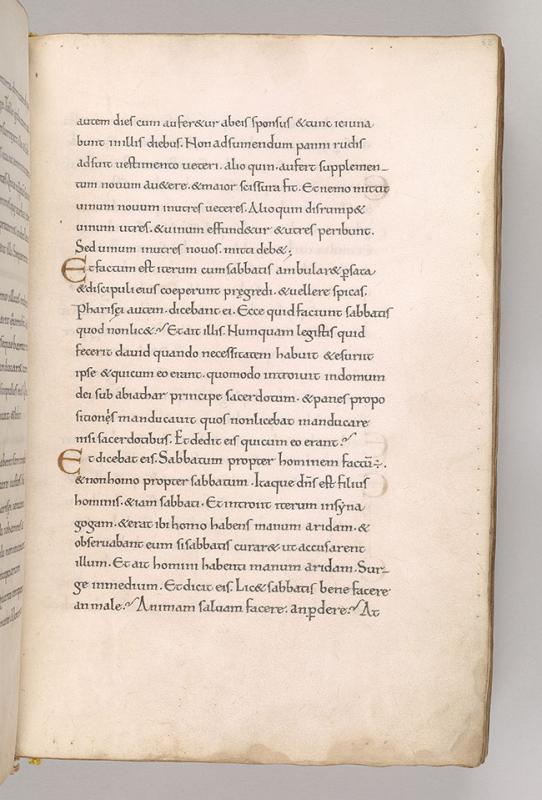 autem dies cum aufer&ur abeis sponsus &tunc ieiuna
bunt inillis diebus. Non adsumentum panni rudis
adsuit uestimento ueteri. alio quin. aufert supplemen-
tum nouum au&ere. &maior scissura fit. Et nemo mittit
uinum nouum inutres ueteres. Alio quin disrump&
uinum utres. &uinum effund&ur &utres peribunt.
Sed uinum inutres nouos. mitti deb&;
Et factum est iterum cum sabbatis ambular& p̱sata
&discipuli eius coeperunt pręgredi. &uellere spicas.
Pharisęi autem. dicebant ei. Ecce quid faciunt sabbatis
quod nonlic&? Et ait illis. Numquam legistis quid
fecerit dauid quando necessitatem habuit &esuriit
ipse &quicum eo erant. quomodo introiuit indomum
dei sub abiathar principe sacerdotum. &panes propo
sitionęs manducauit quos nonlicebat manducare
nisi sacerdotibus. Et dedit eis quicum eo erant?
Et dicebat eis. Sabbatum propter hominem factū÷.
&nonhomo propter sabbatum. Itaque dn̄s est filius
hominis. &iam sabbati. Et introiit iterum insyna
gogam. &erat ibi homo habens manum aridam. &
obseruabant eum sisabbatis curar& ut accusarent
illum. Et ait homini habenti manum aridam. Sur-
ge inmedium. Et dicit eis. Lic& sabbatis bene facere
an male? Animam saluam facere. anp̱dere? At